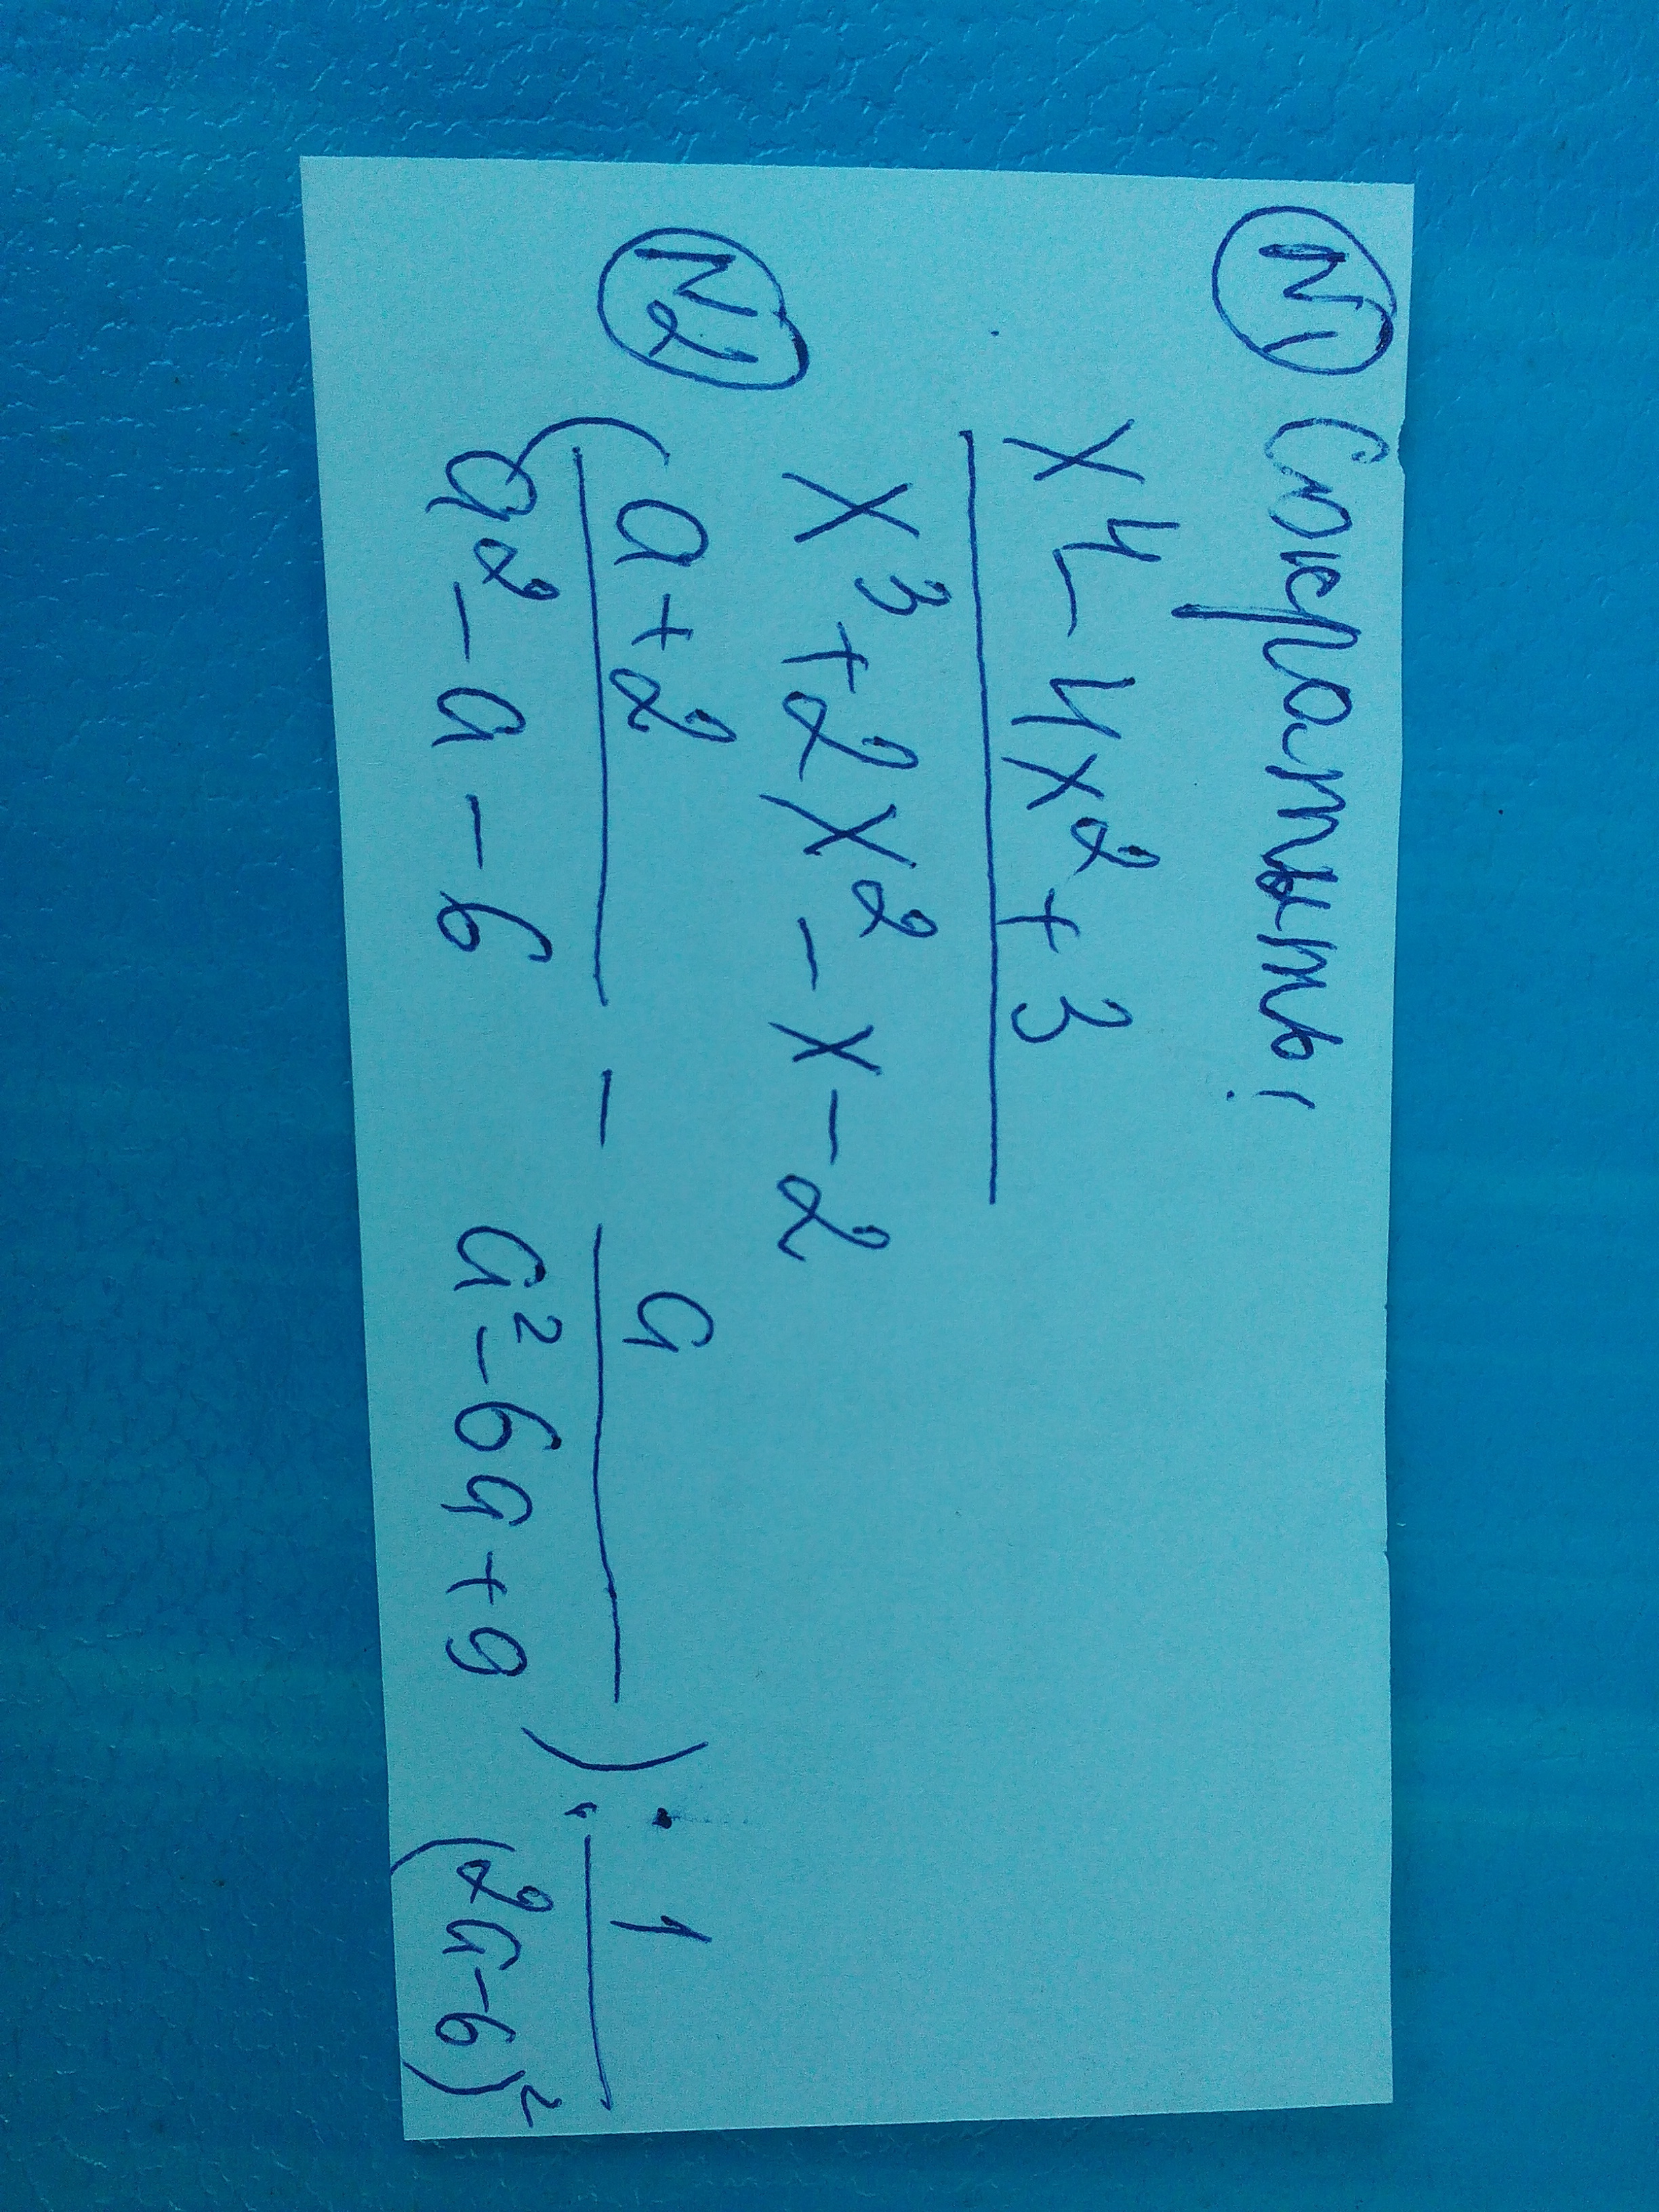 №1 Сократить:
x⁴ - 4x² + 3
x³ + 2x² - x - 2
№2 (a + 2 / a² - a - 6 - a / a² - 6a + 9) : 1 / (2a - 6)²